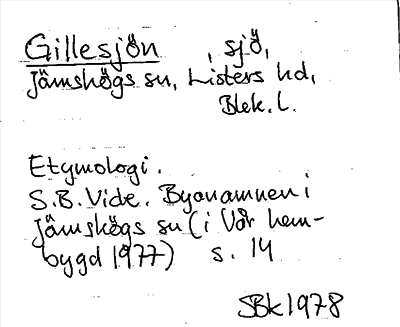 Gillesjön , sjö,
Jämshögs sn, Listers hd,
Blek. l.
Etymologi.
S.B. Vide. Byanamnen i
Jämshögs sn (i Vår hem-
bygd 1977) s. 14
SBk 1978